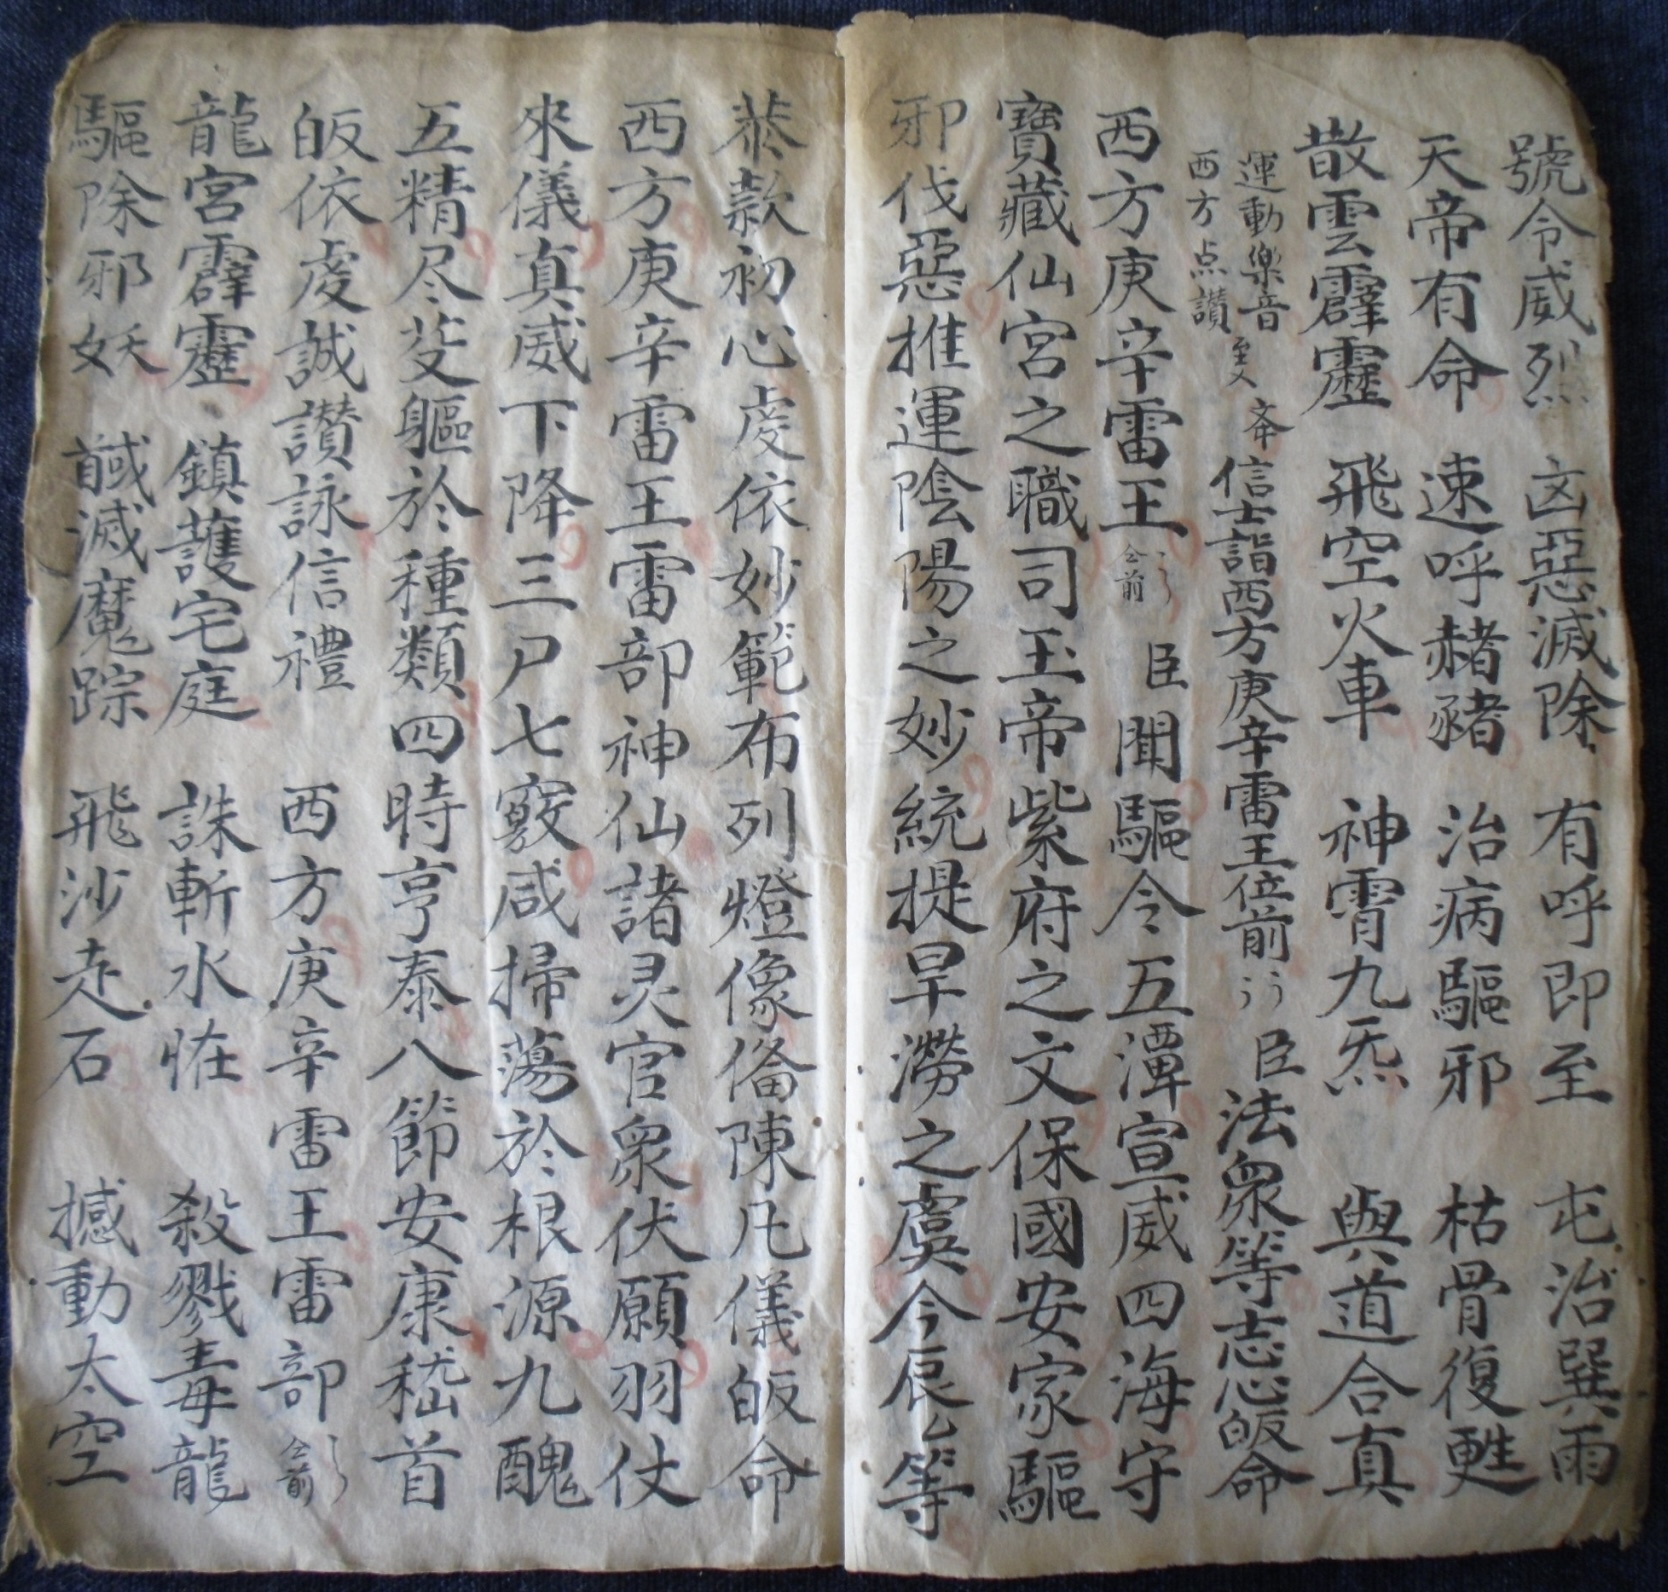 號令威烈 凶惡滅除 有呼即至 屯治巽雨
天帝有命 速呼赭豬 治病驅邪 枯骨復甦
散雲霹靂 飛空火車 神霄九炁 與道合真
運動樂音
西方点讃
至 夲 信士詣西方庚辛雷王位前 臣法衆等志心皈命
西方庚辛雷王 仝前 臣聞驅令五潭宣威四海守
寶藏仙宮之職司玉帝紫府之文保國安家驅
邪伐惡推運陰陽之妙統提旱澇之虞今辰乙等
恭款初心虔依妙範布列燈像俻陳凡儀皈命
西方庚辛雷王雷部神仙諸灵官衆伏願羽仗
來儀真威下降三尸七竅咸掃蕩於根源九醜
五精尽芟軀於種類四時亨泰八節安康嵇首
皈依虔誠讃詠信禮 西方庚辛雷王雷部 仝前
龍宮霹靂 鎮護宅庭 誅斬水恠 殺戮毒龍
驅除邪妖 馘滅魔踪 飛沙走石 撼動太空